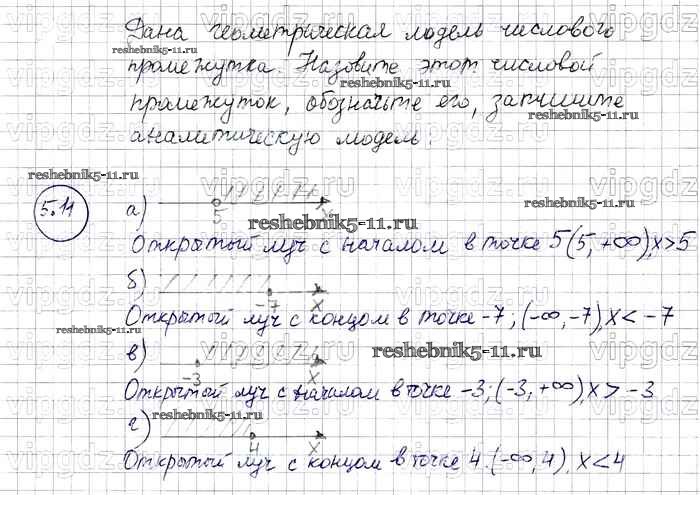 Дана геометрическая модель числового
промежутка. Назовите этот числовой
промежуток, обозначьте его, запишите
аналитическую модель.
reshebnik5-11.ru
5.11
а)
5
x
Открытый луч с началом в точке 5(5, +∞), x>5
б)
-7
x
Открытый луч с концом в точке -7; (-∞, -7), x < -7
в)
-3
x
Открытый луч с началом в точке -3; (-3, +∞), x > -3
г)
4
x
Открытый луч с концом в точке 4. (-∞, 4), x < 4
vipgdz.ru